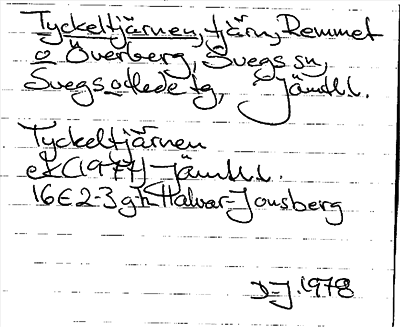 Tyckeltjärnen, tjärn, Remmet
o Överberg, Svegs sn,
Svegs o Hede tg, Jämtl.l.
Tyckeltjärnen
ek (1977) Jämtl.l.
16E 2-3 g-h Halvar-Jonsberg
D-J. 1978